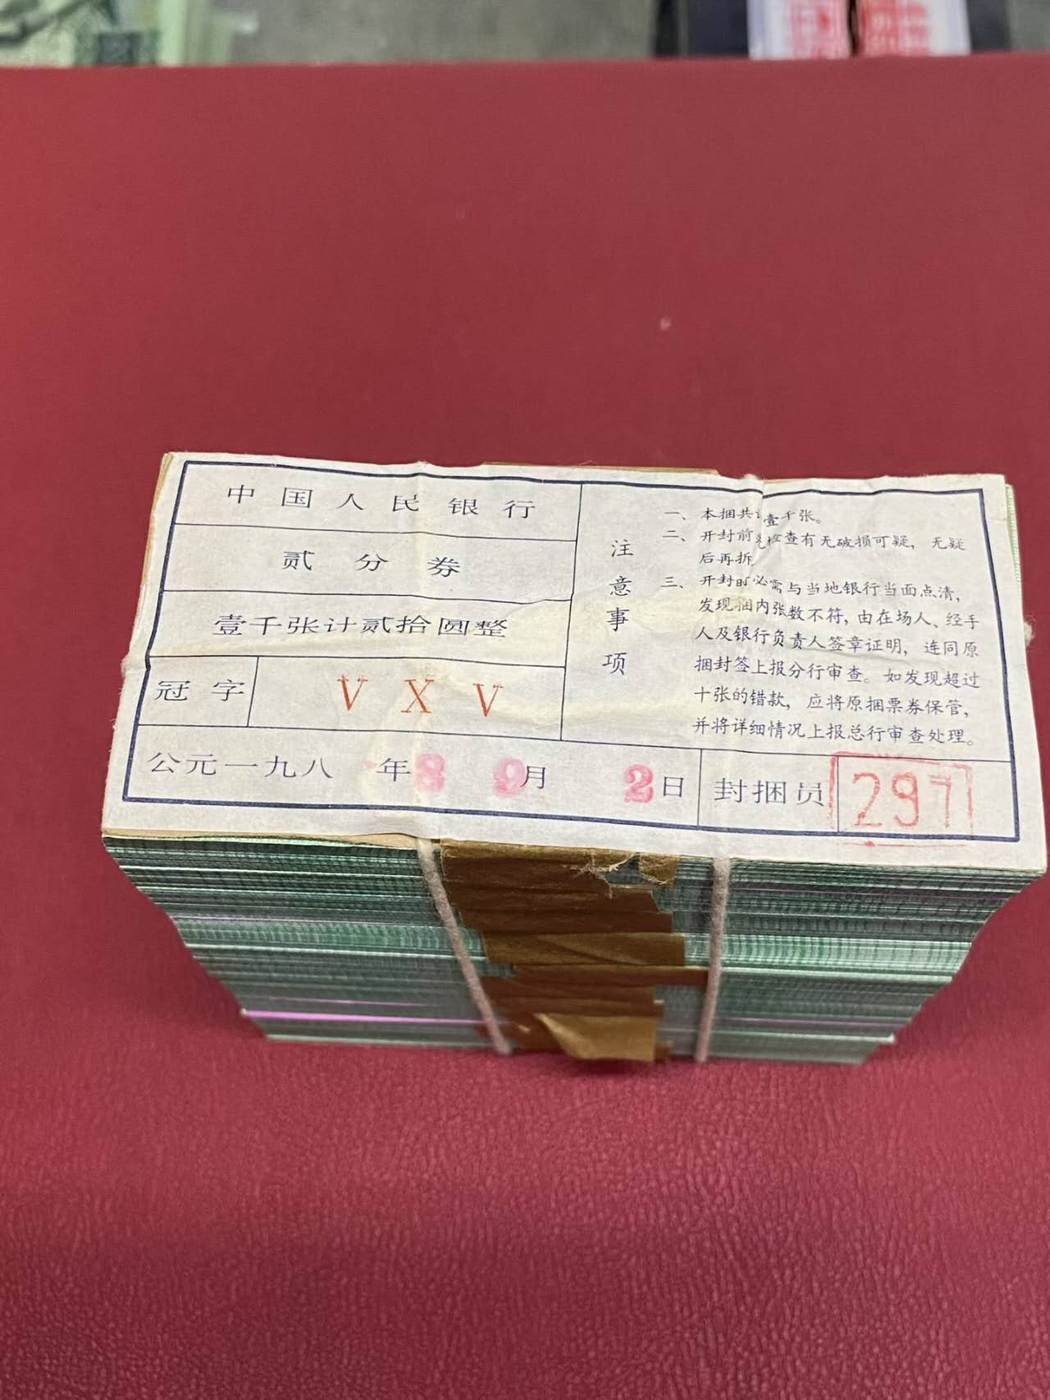 中国人民银行
贰分券
壹千张计贰拾圆整
冠字 V X V
公元一九八 年8 9月 2日
注意事项
一、本捆共 壹千张。
二、开封前 检查有无破损可疑，无疑
后再拆
三、开封时必需与当地银行当面点清，
发现捆内张数不符，由在场人、经手
人及银行负责人签章证明，连同原
捆封签上报分行审查。如发现超过
十张的错款，应将原捆票券保管，
并将详细情况上报总行审查处理。
封捆员 297